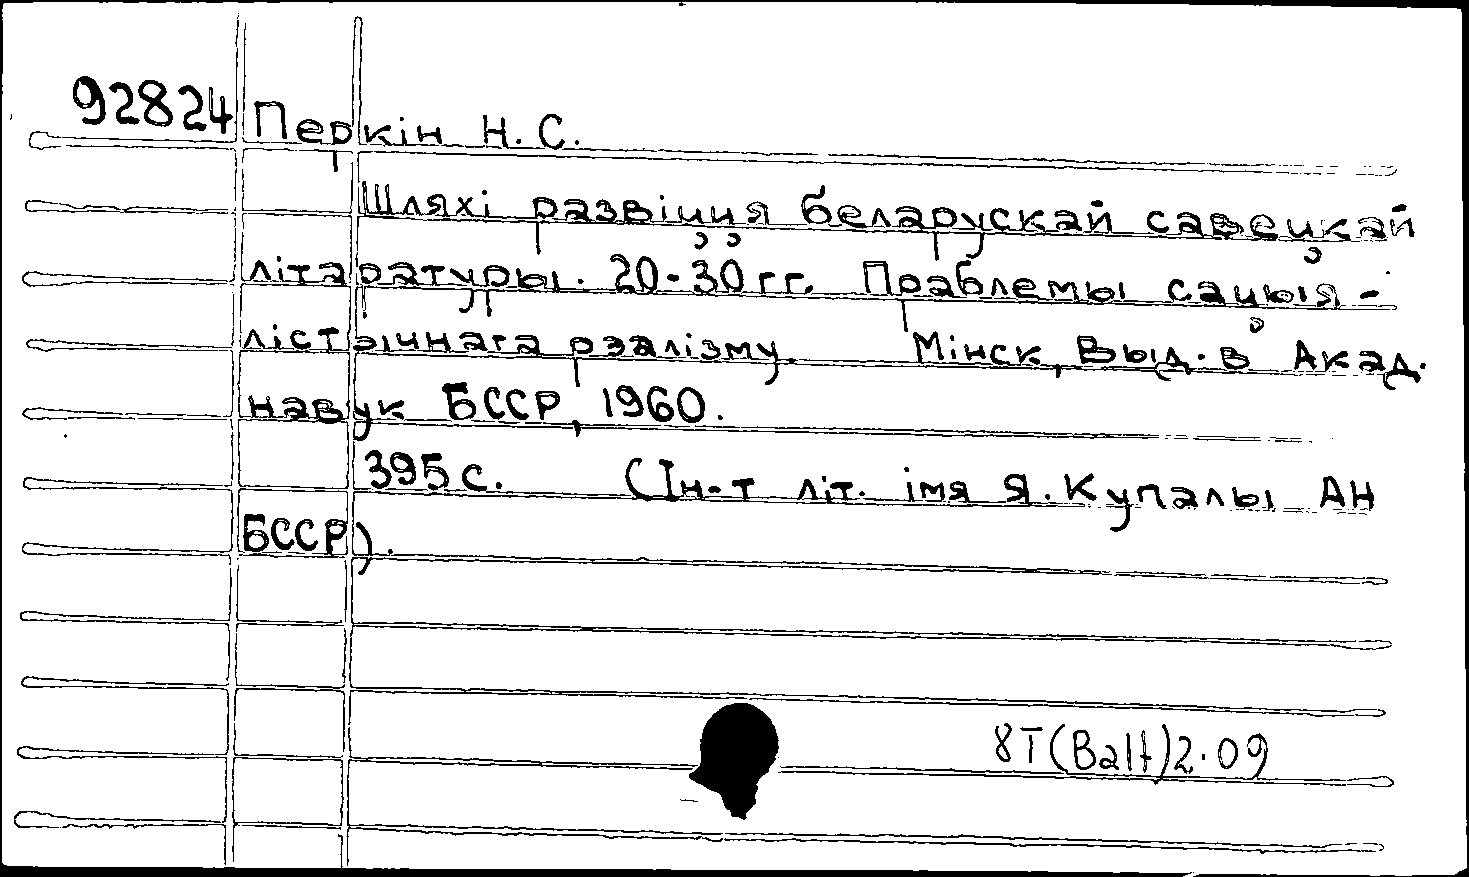 92824 Перкін Н. С.
Шляхі развіцця беларускай савецкай
літаратуры. 20-30 гг. Праблемы сацыя-
лістычнага рэалізму. Мінск, Выд-в Акад.
навук БССР, 1960.
395 с. (Ін-т літ. імя Я. Купалы АН
БССР).
8Т(Balt)2.09